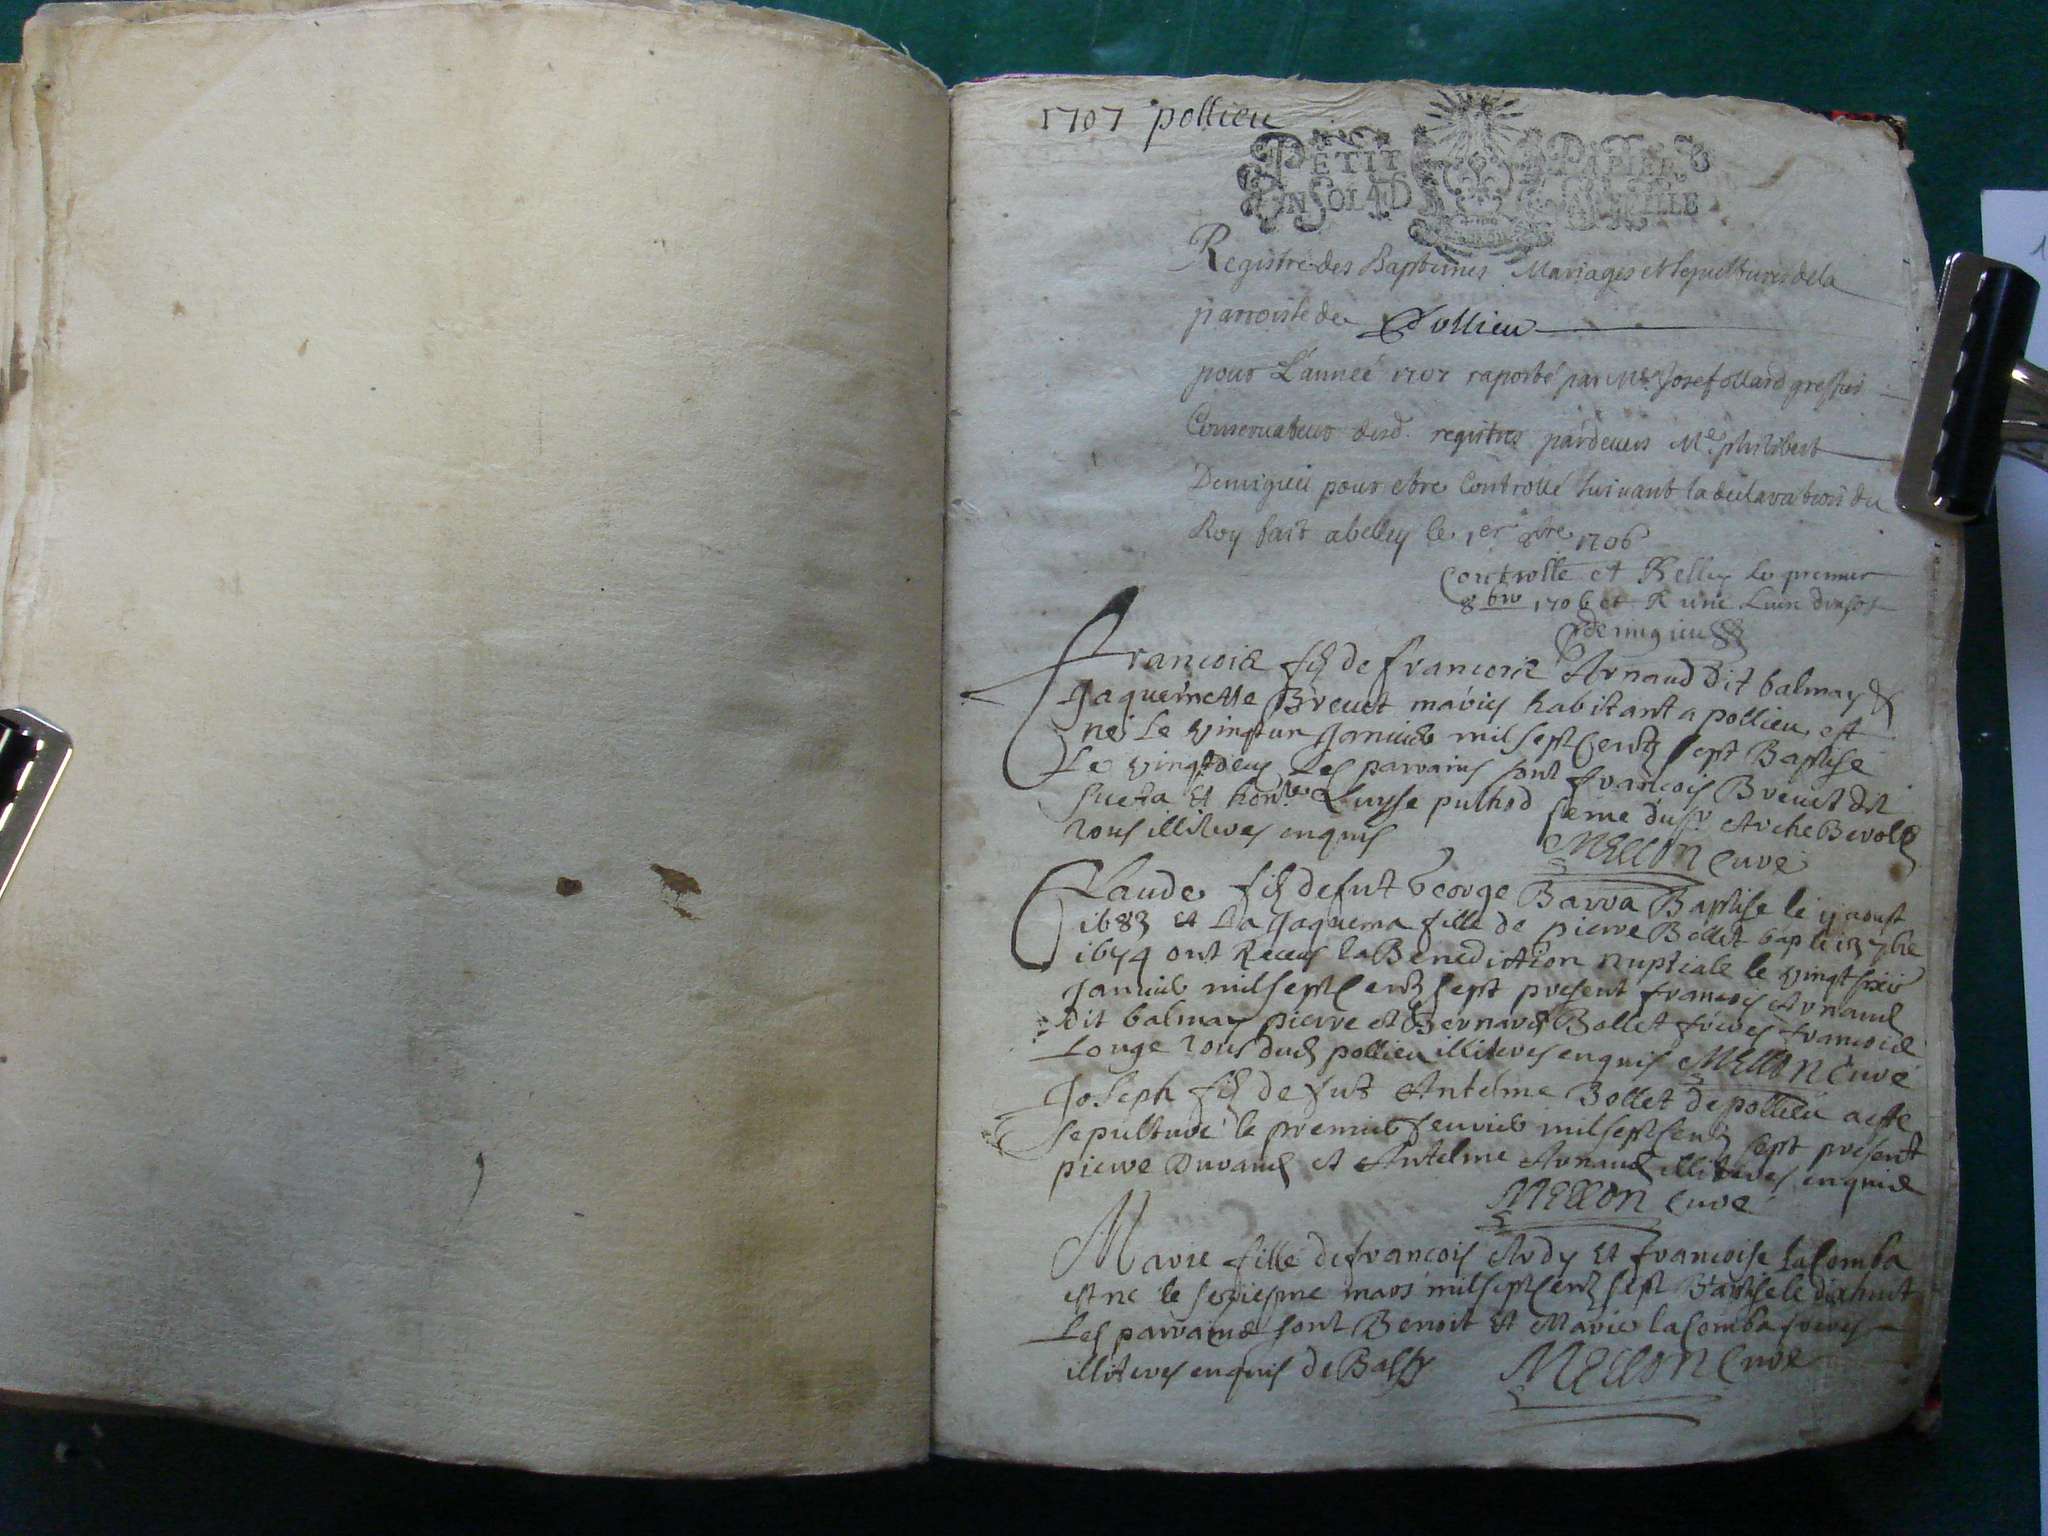 1707 pollieu
PETIT PAPIER
UN SOL 4 D LA FEUILLE
Registre des Baptemes Mariages et sepultures de la
parroisse de Pollieu
pour L'année 1707 raporté par Me. Josef ollard greffier
Conservateur desd. registres pardevers Me. philibert
Demigieu pour etre Controllé suivant la declaration du
Roy fait a belley le 1er 8bre 1706
Controllé et Belley Le premier
8bre 1706 et R une Livre
demigieu
francois fils de francois Arnaud dit balmay &
Jaquemette Brevet mariés habitant a pollieu, est
né Le vingtun Janvier mil sept Cents sept Baptise
Le vingtdeux Les parrains sont francois Brevet dit
et honte Luyse puthod feme du sr Arche Berold
tous illiteres enquis MELLON Curé
Claude fils de fut George Barra Baptise le 11 aoust
1683 et La Jaquema fille de pierre Bollet bap le 13 7bre
1674 ont Receus la Benediction nuptiale le vingt six
Janvier mil sept Cents sept present francois Arnaud
dit balmay pierre et Bernard Bollet freres francois
Louge tous dud pollieu illiteres enquis MELLON Curé
Joseph fils de fut Antelme Bollet de pollieu a esté
sepulturé le premier fevrier mil sept Cents sept present
pierre Durand et Antelme Arnaud illiteres enquis
MELLON Curé
Marie fille de francois Ardy et francoise laComba
est ne le seziesme mars mil sept Cents sept Baptise le dixhuit
Les parrains sont Benoit et Marie laComba freres
illiteres enquis de MELLON Curé